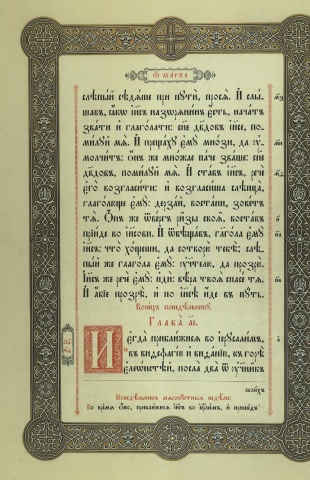 Ѿ МАРКА
слѣпый сѣдѧше при пꙋти, просѧ. И слы-
шавъ, ꙗкѡ і҆и҃съ назѡрѧнинъ є҆сть, начатъ
звати и҆ глаголати: сн҃е дв҃довъ і҆и҃се, по-
милꙋй мѧ. И прещахꙋ є҆мꙋ мнози, да ᲂу҆-
молчитъ: Ѻ҆нъ же множае паче зваше: сн҃е
дв҃довъ, помилꙋй мѧ. И ставъ і҆и҃съ, рече
є҆го возгласити: и҆ возгласиша слѣпца,
глаголюще є҆мꙋ: дерзай, востани, зоветъ
тѧ. Ѻ҆нъ же ѿвергъ ризы своѧ, воставъ
прїиде ко і҆исови. И ѿвѣщавъ, гл҃гола є҆мꙋ
і҆и҃съ: что хощеши, да сотворю тебѣ; слѣ-
пый же глагола є҆мꙋ: ᲂу҆чителю, да прозрю.
І҆и҃съ же рече є҆мꙋ: и҆ди: вѣра твоѧ спасе тѧ.
И а҆бїе прозрѣ, и҆ по і҆и҃сѣ и҆де въ пꙋть.
Конецъ понедѣльникꙋ.
Глава аі.
И҆егда приближисѧ во і҆ерꙋсалимъ,
въ виѳсфагїю и҆ виѳанїю, къ горѣ
є҆леѡнстѣй, посла два ѿ ᲂу҆ченикъ
своихъ
Понедѣльникъ мѧсопꙋстныѧ недѣли:
Во времѧ ѻ҆но, приближисѧ і҆и҃съ во і҆ер҇лимъ, и҆ прїидѣ